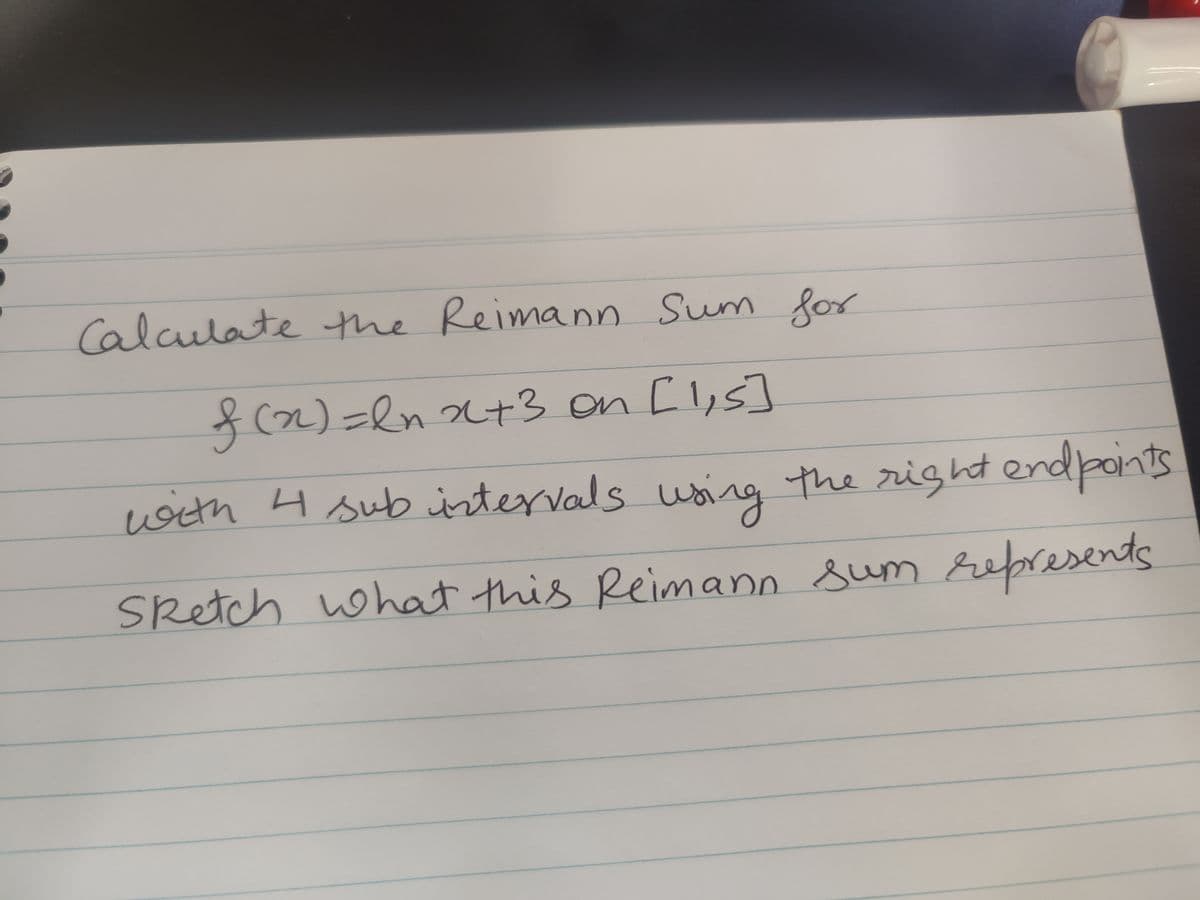 Calculate the Reimann Sum for
f(x)=ln x+3 on [1,5]
with 4 sub intervals using the right endpoints
Sketch what this Reimann sum represents